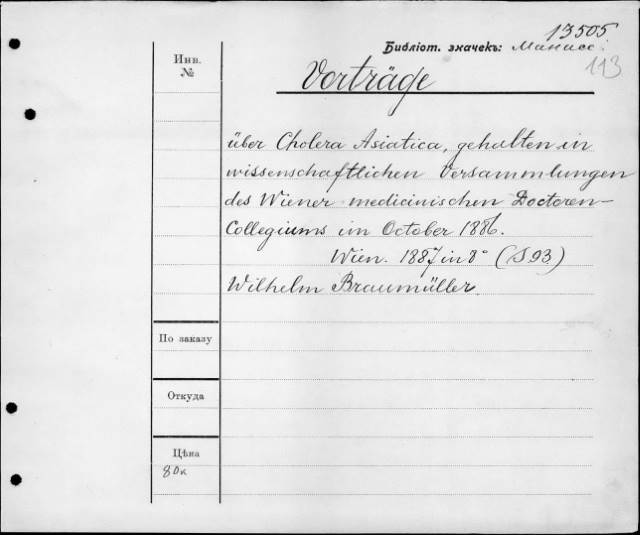 13505
Библіот. значекъ: Манасс.
113
Инв.
№
Vorträge
über Cholera Asiatica, gehalten in
wissenschaftlichen Versammlungen
des Wiener medicinischen Doctoren-
Collegiums im October 1886.
Wien. 1887 in 8° (S 93)
Wilhelm Braumüller.
По заказу
Откуда
Цѣна
80к